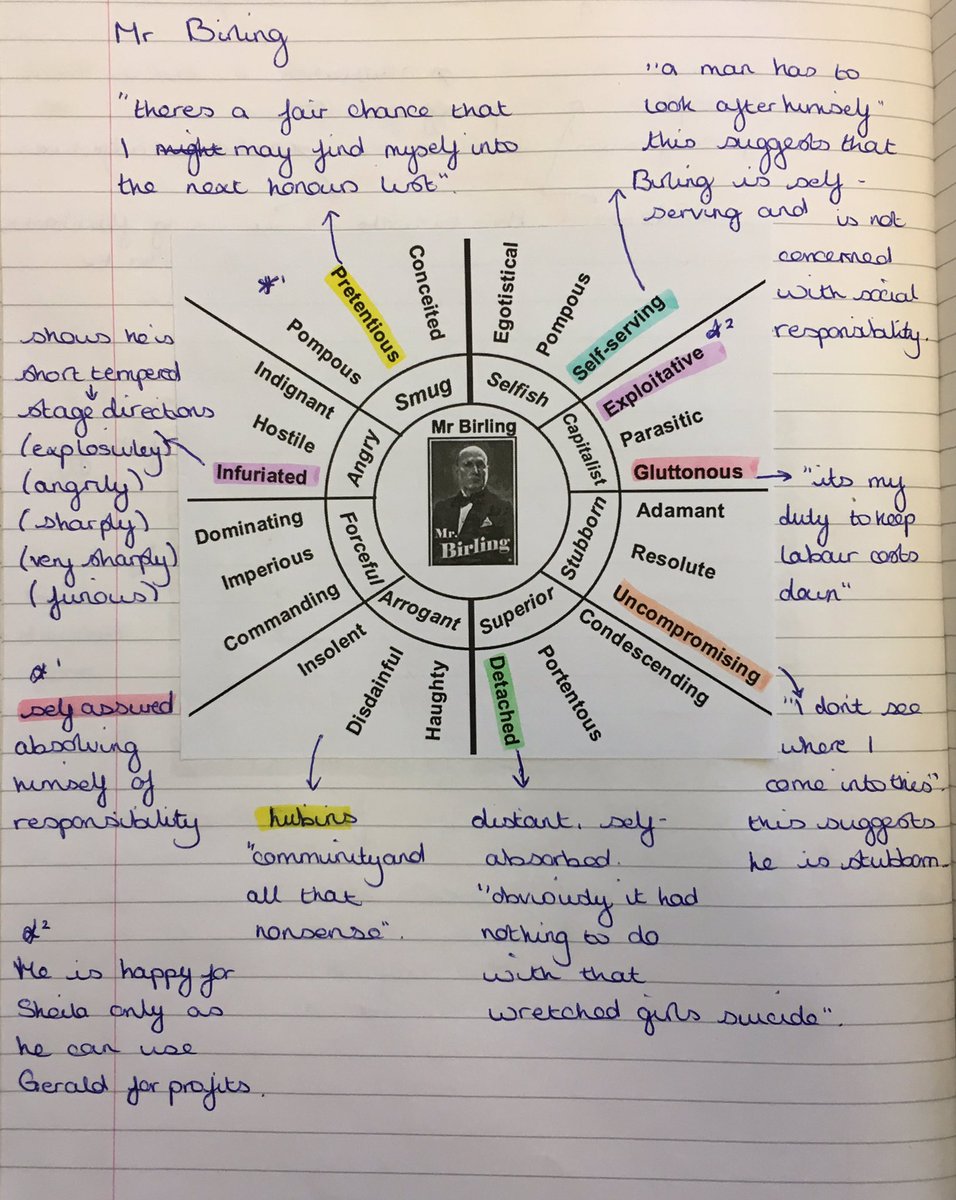 Mr Birling
"theres a fair chance that
I might may find myself into
the next honours list".
"a man has to
look after himself"
this suggests that
Birling is self-
serving and is not
concerned
with social
responsibility.
shows he is
short tempered
stage directions
(explosivley)
(angrily)
(sharply)
(very sharply)
(furious)
*1
Pretentious
Conceited
Pompous
Smug
Egotistical
Pompous
Self-serving
Selfish
*2
Exploitative
Parasitic
Gluttonous
Capitalist
Indignant
Hostile
Infuriated
Angry
Mr Birling
Mr.
Birling
Adamant
Resolute
Uncompromising
Stubborn
Dominating
Imperious
Commanding
Forceful
Insolent
Disdainful
Haughty
Arrogant
Detached
Portentous
Condescending
Superior
"its my
duty to keep
labour costs
down"
"I don't see
where I
come into this".
this suggests
he is stubborn.
*1
self assured
absolving
himself of
responsibility
hubris
"community and
all that
nonsense".
distant, self-
absorbed.
"obviously it had
nothing to do
with that
wretched girls suicide".
*2
He is happy for
Sheila only as
he can use
Gerald for profits.